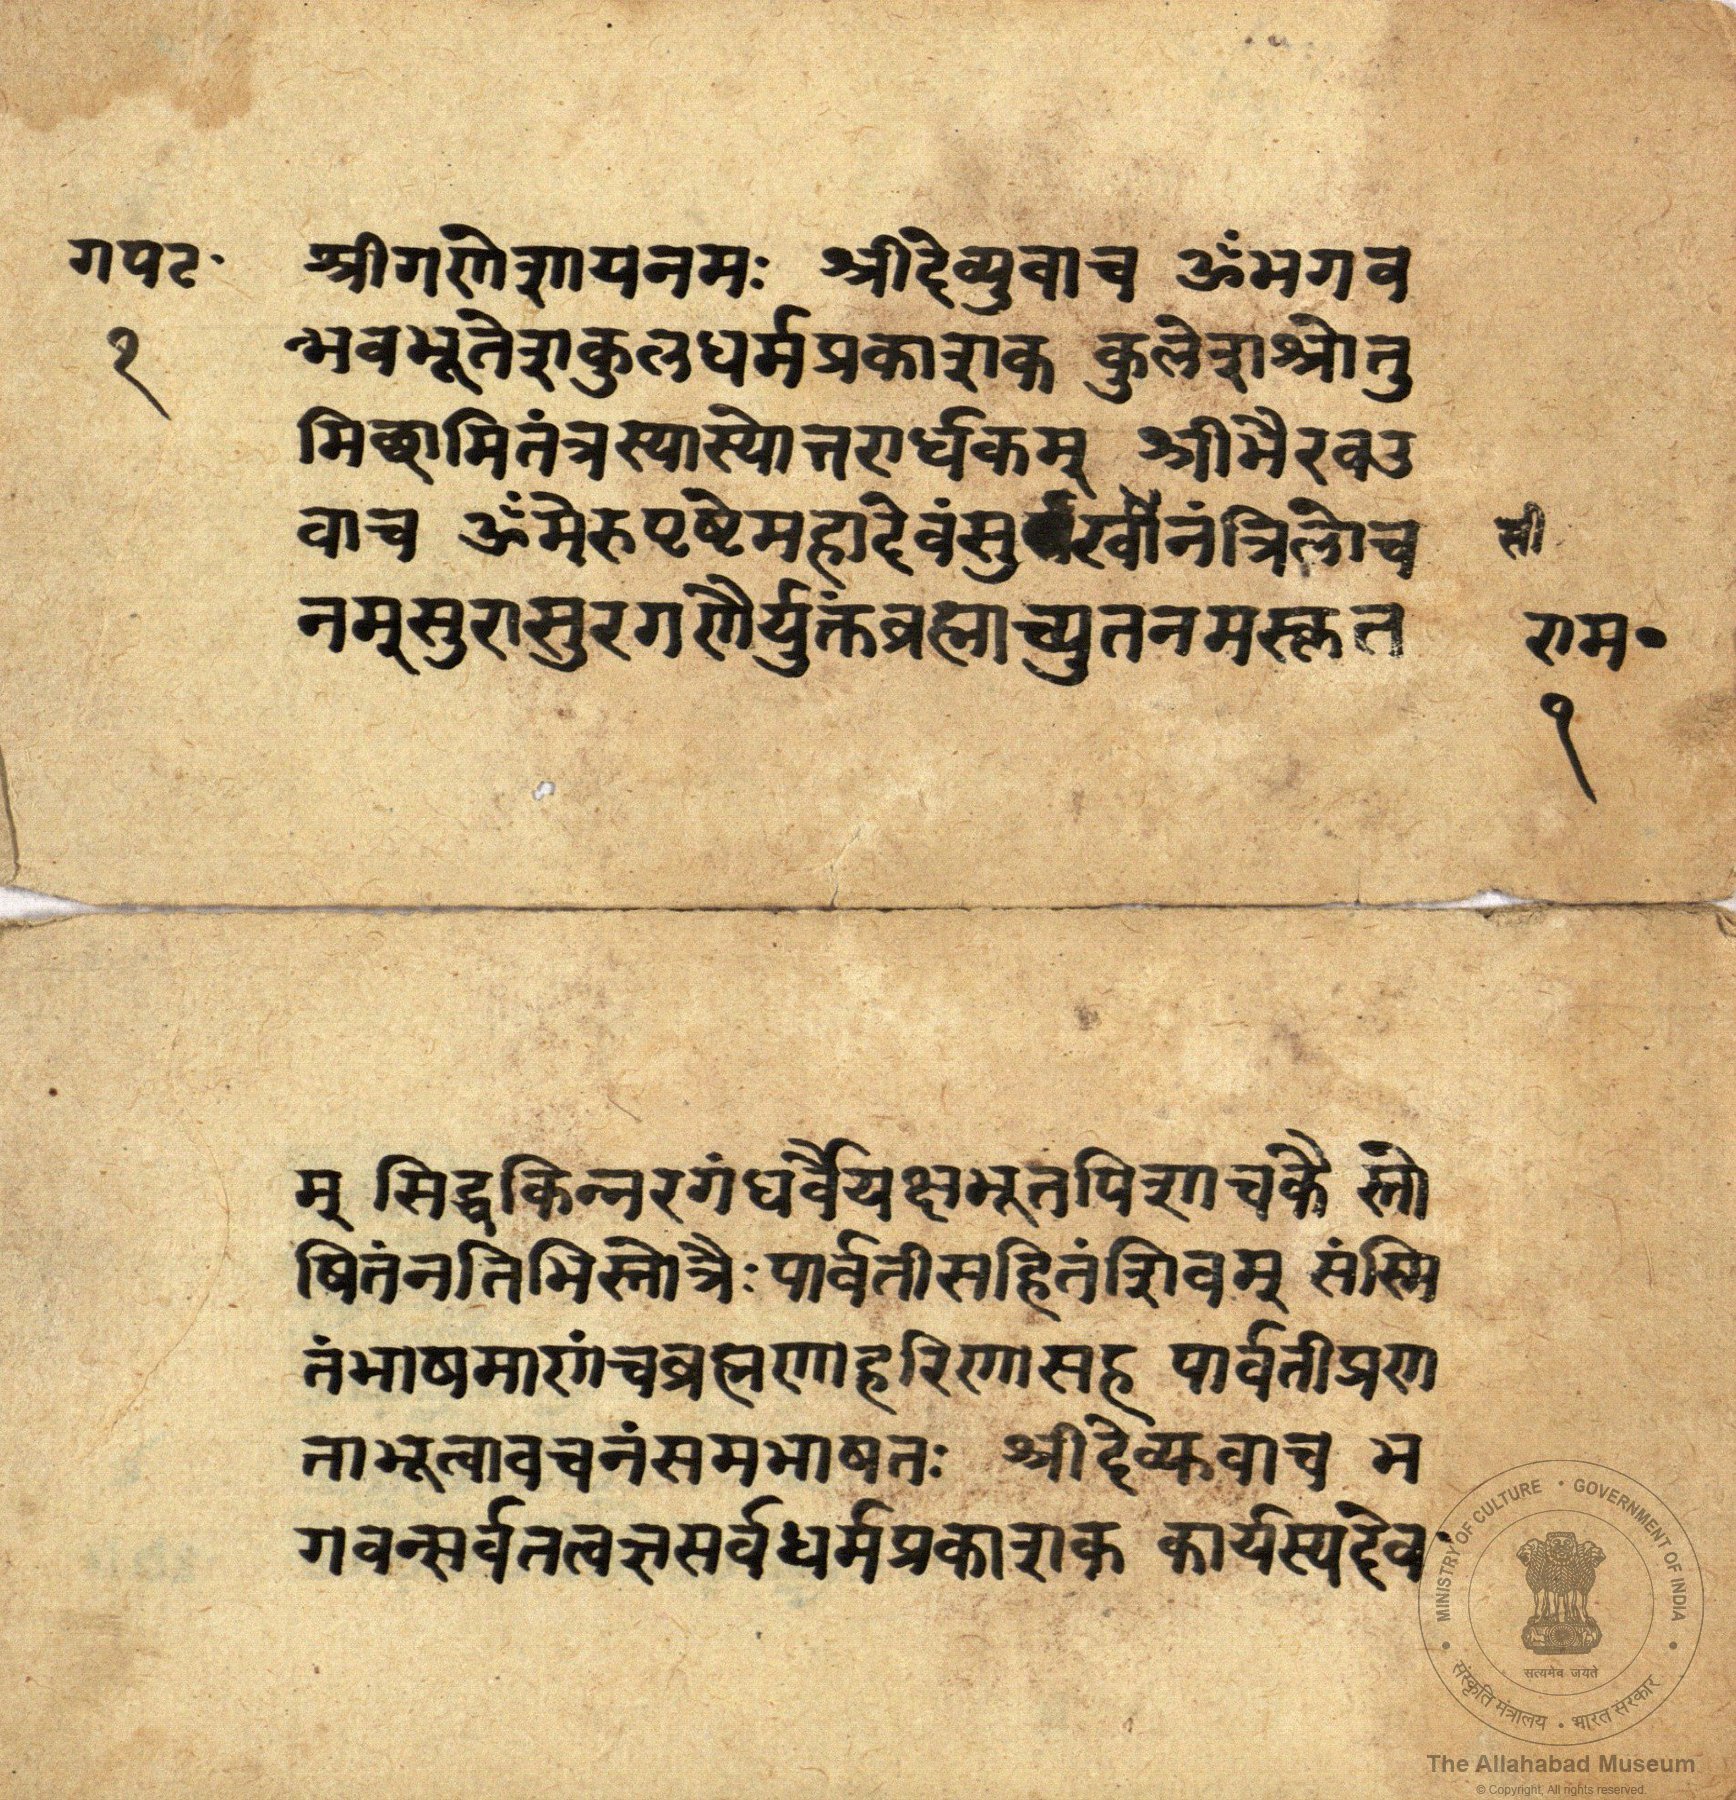 गपट॰ श्रीगणेशायनमः श्रीदेव्युवाच ॐभगव
१ न्भवभूतेशकुलधर्मप्रकाशक कुलेशश्रोतु
मिच्छामितंत्रस्यास्योत्तरार्धकम् श्रीभैरवउ
वाच ॐमेरुपृष्टेमहादेवं त्रिलोच सी
नम्सुरासुरगणैर्युक्तंब्रह्माच्युतनमस्कृत राम॰
१
म् सिद्धकिन्नरगंधर्वैयक्षभूतपिशाचकै स्तो
षितंनतिभिस्तोत्रैःपार्वतीसहितंशिवम् संस्मि
तंभाषमाणंचब्रह्मणाहरिणासह पार्वतीप्रण
ताभूत्वावचनंसमभाषतः श्रीदेव्युवाच भ
गवन्सर्वतत्वज्ञसर्वधर्मप्रकाशक कार्यस्यदेव
MINISTRY OF CULTURE • GOVERNMENT OF INDIA
सत्यमेव जयते
संस्कृति मंत्रालय • भारत सरकार
The Allahabad Museum
© Copyright, All rights reserved.